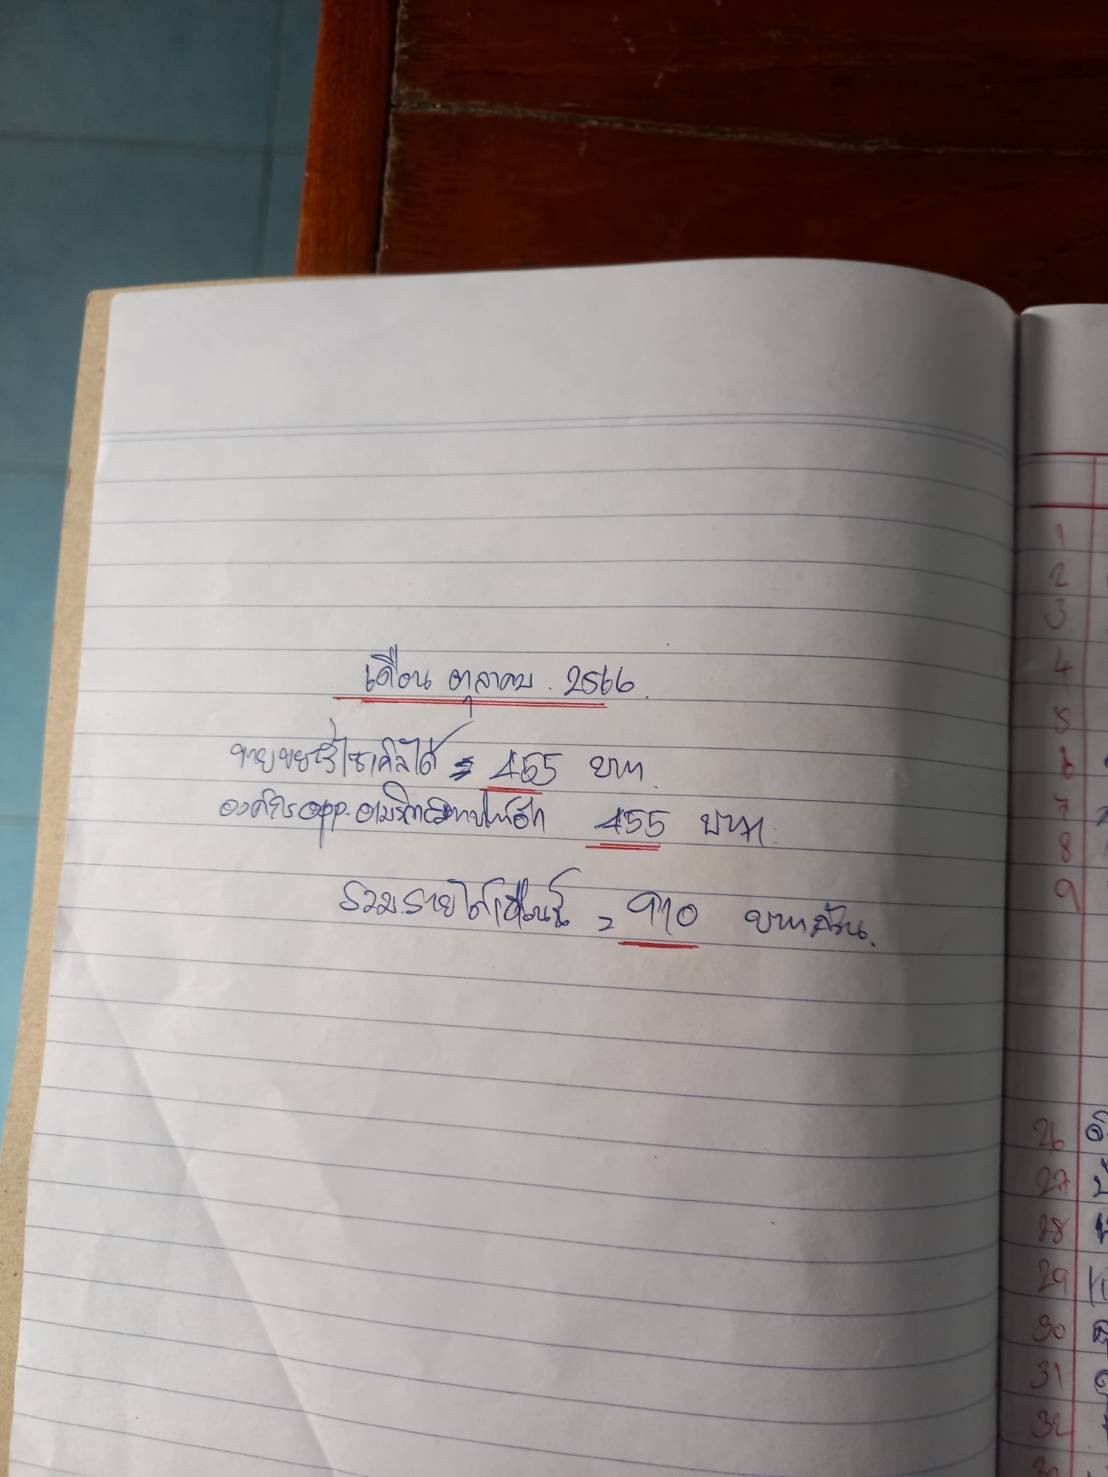 เดือน ตุลาคม. 2566.
ขายขยะรีไซเคิลได้ = 455 บาท
องค์กร opp. 455 บาท.
รวมรายได้เดือนนี้ = 910 บาทถ้วน.
1
2
3
4
5
6
7
8
9
26
27
28
29
30
31
32